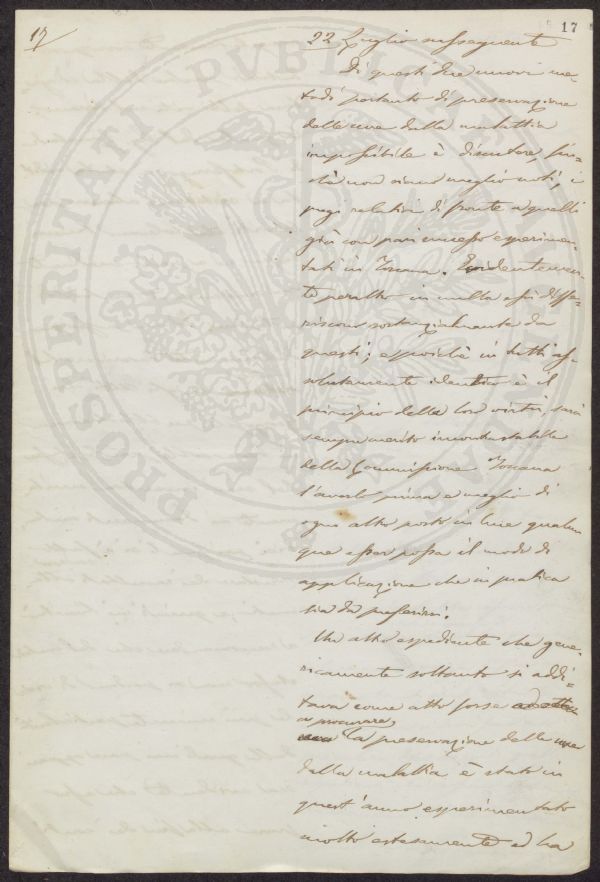 17
17
22 Luglio susseguente
Di questi due nuovi me-
todi pertanto di preservazione
delle uve dalla malattia
impossibile è discutere fin-
chè non siano meglio noti, i
pregi relativi di fronte a quelli
già con pari successo esperimen-
tati in Toscana. Evidentemen-
te peraltro in nulla essi diffe-
riscono sostanzialmente da
questi; e poichè in tutti as-
solutamente identico è il
principio della loro virtù, sarà
sempre merito incontrastabile
della Commissione Toscana
l'averlo prima e meglio di
ogni altro posto in luce qualun-
que esser possa il modo di
applicazione che in pratica
sia da preferirsi.
Un altro espediente che gene-
ricamente soltanto si addi-
tava come atto forse
a procurare,
la preservazione delle uve
dalla malattia è stato in
quest'anno esperimentato
molto estesamente ed ha
PROSPERITATI PUBLICAE